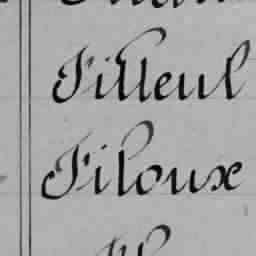 Filleul
Filoux